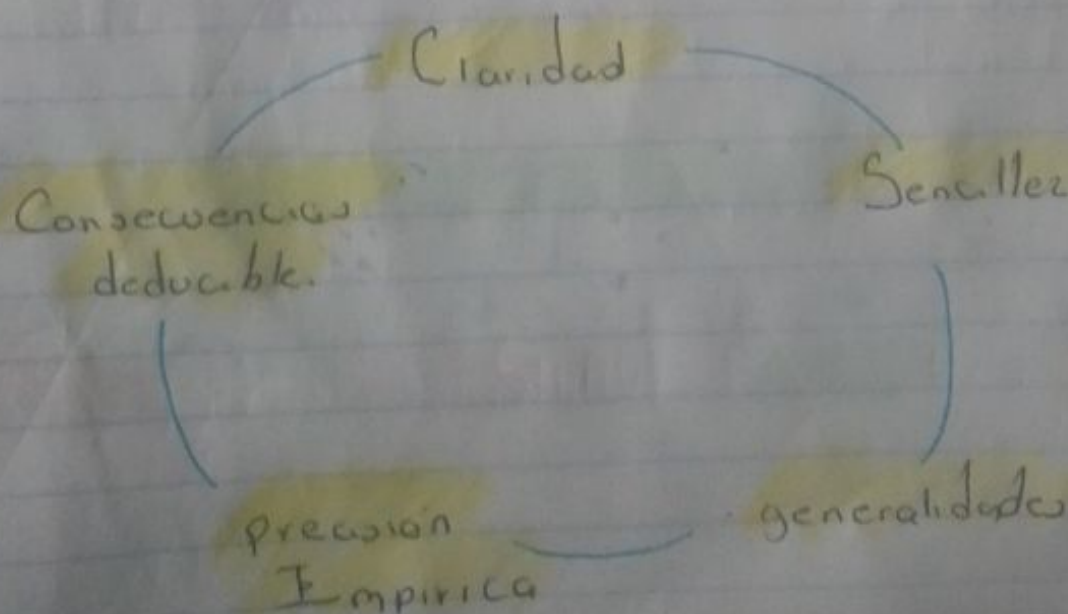 Claridad
Sencillez
generalidades
precisión
Empirica
Consecuencias
deducible.